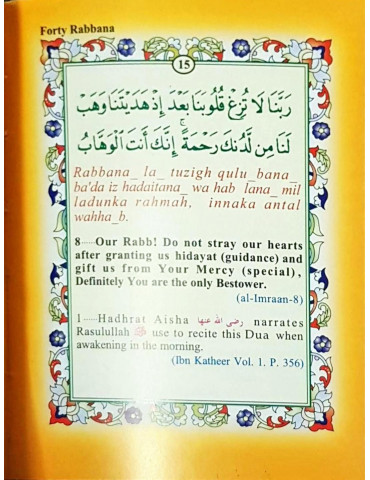 Forty Rabbana
15
رَبَّنَا لَا تُزِغْ قُلُوبَنَا بَعْدَ إِذْ هَدَيْتَنَا وَهَبْ
لَنَا مِن لَّدُنكَ رَحْمَةً ۚ إِنَّكَ أَنتَ الْوَهَّابُ
Rabbana_ la_ tuzigh qulu_bana_
ba'da iz hadaitana_ wa hab lana_ mil
ladunka rahmah, innaka antal
wahha_b.
8-----Our Rabb! Do not stray our hearts
after granting us hidayat (guidance) and
gift us from Your Mercy (special),
Definitely You are the only Bestower.
(al-Imraan-8)
1-----Hadhrat Aisha رضى الله عنها narrates
Rasulullah ﷺ use to recite this Dua when
awakening in the morning.
(Ibn Katheer Vol. 1. P. 356)